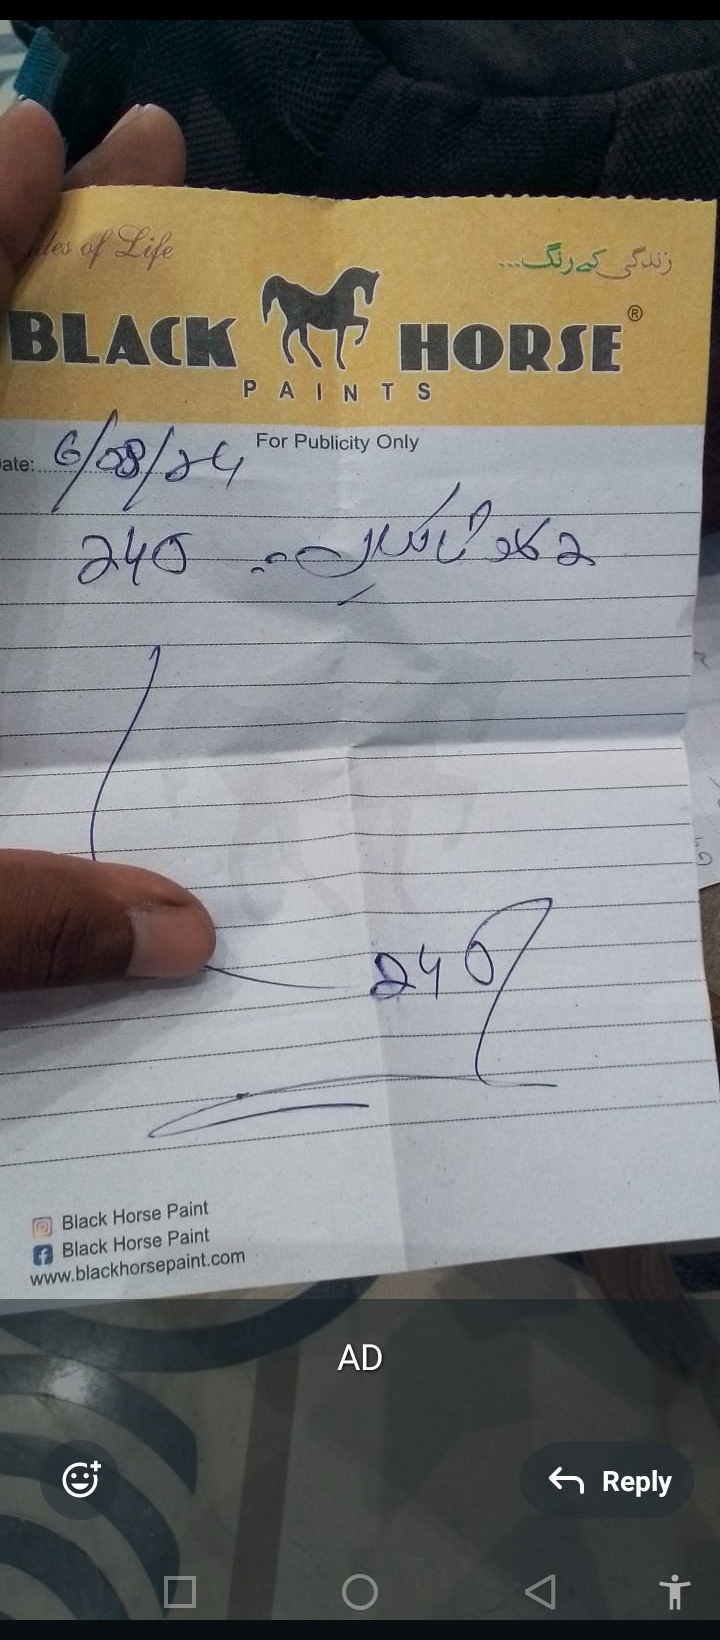 des of Life
زندگی کے رنگ...
BLACK HORSE®
PAINTS
For Publicity Only
ate: 6/08/24
2 240
240
Black Horse Paint
Black Horse Paint
www.blackhorsepaint.com
AD
Reply